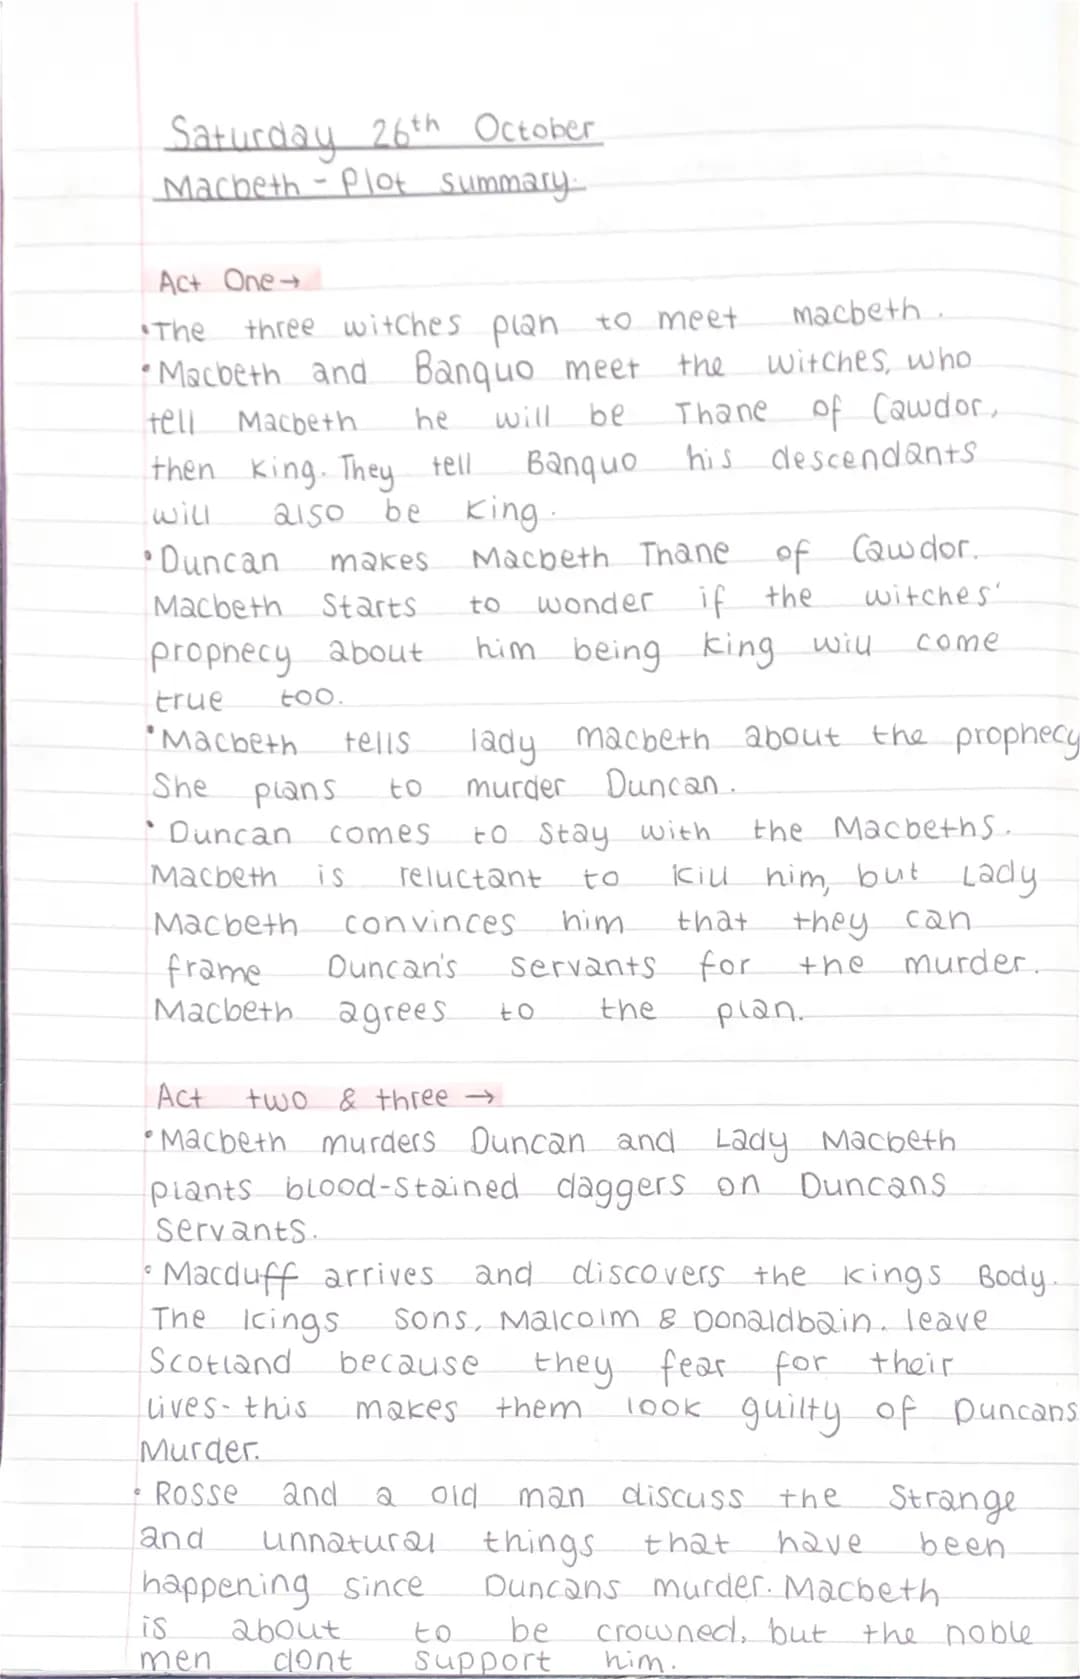 Saturday 26th October
Macbeth - Plot summary.
Act One →
• The three witches plan to meet macbeth.
• Macbeth and Banquo meet the witches, who
tell Macbeth he will be Thane of Cawdor,
then King. They tell Banquo his descendants
will also be King.
• Duncan makes Macbeth Thane of Cawdor.
Macbeth Starts to wonder if the witches'
prophecy about him being King will come
true too.
• Macbeth tells lady macbeth about the prophecy
She plans to murder Duncan.
• Duncan comes to Stay with the Macbeths.
Macbeth is reluctant to Kill him, but Lady
Macbeth convinces him that they can
frame Duncan's Servants for the murder.
Macbeth agrees to the plan.
Act two & three →
• Macbeth murders Duncan and Lady Macbeth
plants blood-stained daggers on Duncans
Servants.
• Macduff arrives and discovers the Kings Body.
The Kings Sons, Malcolm & Donaldbain. leave
Scotland because they fear for their
lives- this makes them look guilty of Duncans
Murder.
• Rosse and a old man discuss the Strange
and unnatural things that have been
happening since Duncans murder. Macbeth
is about to be crowned, but the noble
men dont support him.